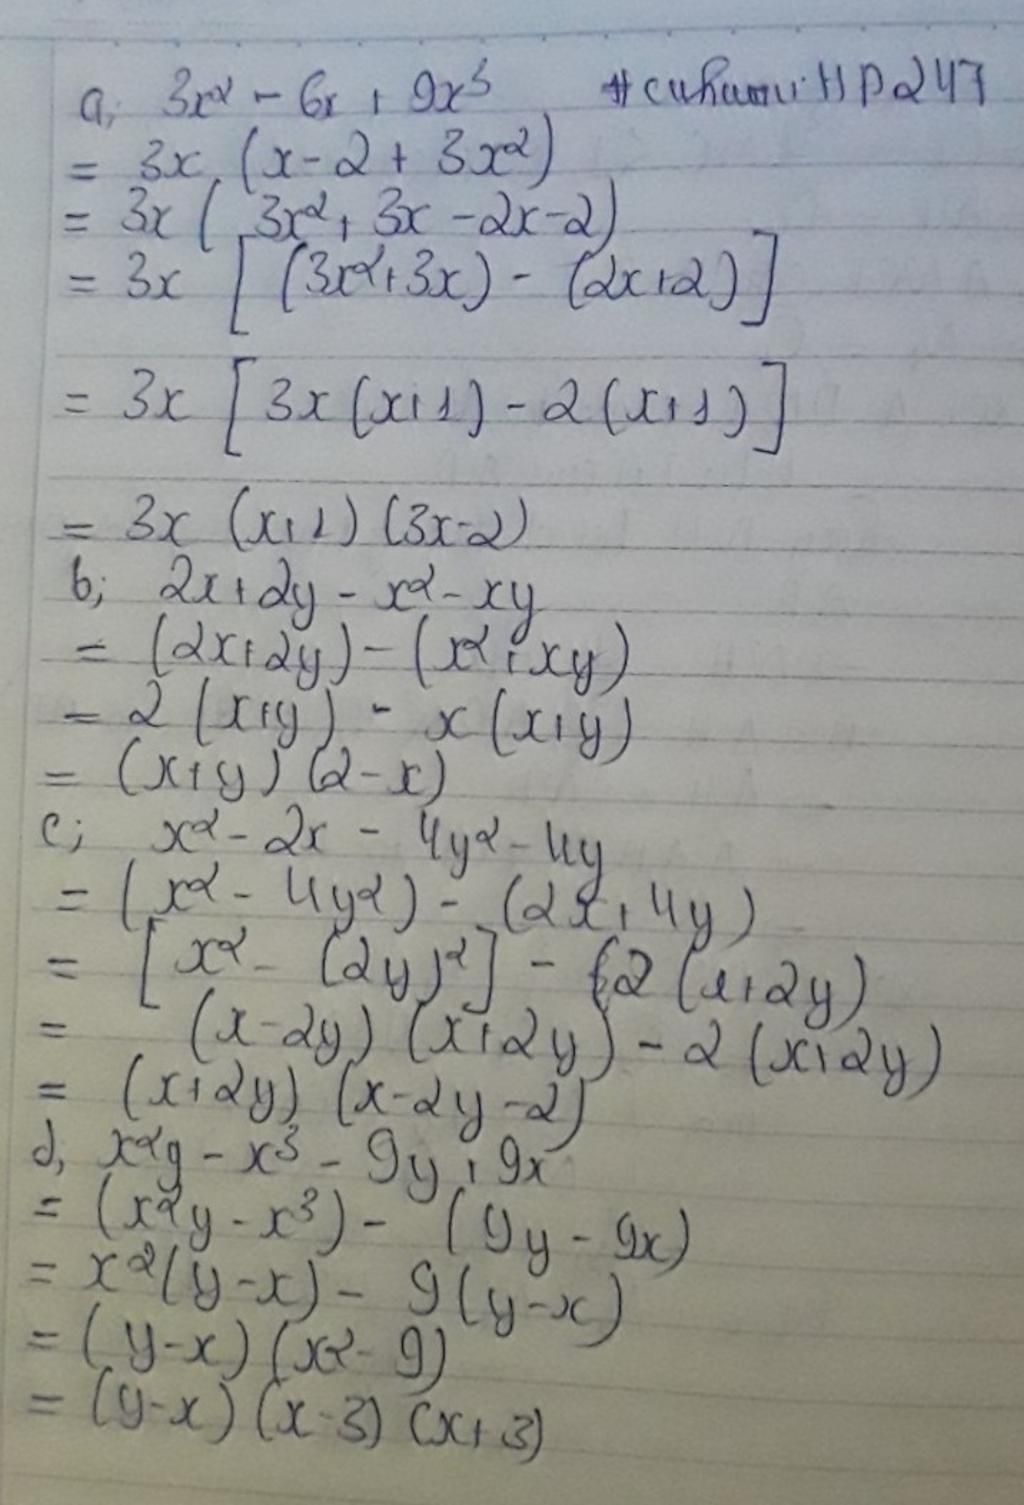 a, 3x² - 6x + 9x³
= 3x (x - 2 + 3x²)
= 3x ( 3x² + 3x - 2x - 2)
= 3x [ (3x² + 3x) - (2x + 2) ]
= 3x [ 3x (x + 1) - 2 (x + 1) ]
= 3x (x + 1) (3x - 2)
b; 2x + 2y - x² - xy
= (2x + 2y) - (x² + xy)
= 2 (x + y) - x (x + y)
= (x + y) (2 - x)
c; x² - 2x - 4y² - 4y
= (x² - 4y²) - (2x + 4y)
= [ x² - (2y)² ] - 2 (x + 2y)
= (x - 2y) (x + 2y) - 2 (x + 2y)
= (x + 2y) (x - 2y - 2)
d, x²y - x³ - 9y + 9x
= (x²y - x³) - (9y - 9x)
= x² (y - x) - 9 (y - x)
= (y - x) (x² - 9)
= (y - x) (x - 3) (x + 3)